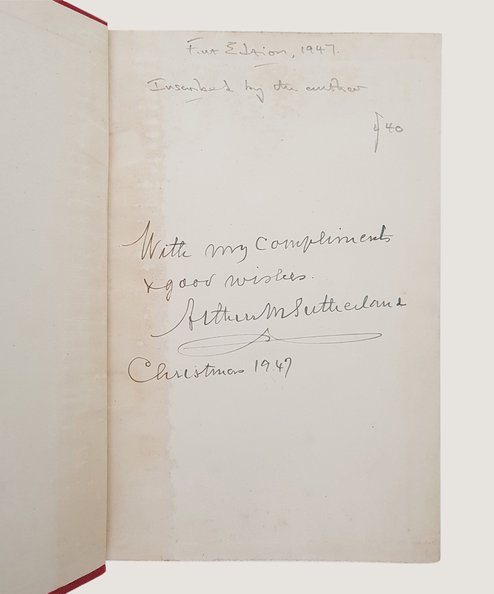 First Edition, 1947.
Inscribed by the author
£40
With my compliments
& good wishes.
Arthur M Sutherland
Christmas 1947